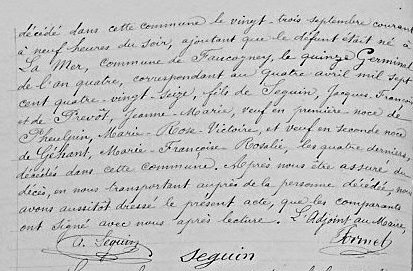 décédé dans cette commune le vingt-trois septembre courant
à neuf heures du soir, ajoutant que le défunt était né à
La Mer, commune de Faucogney, le quinze Germinal
de l'an quatre, correspondant au quatre avril mil sept
cent quatre-vingt-seize, fils de Seguin, Jacques-François
et de Prevôt, Jeanne-Marie, veuf en première noce de
Pheulpin, Marie-Rose-Victoire, et veuf en seconde noce
de Géhant, Marie-Françoise-Rosalie, les quatre derniers,
décédés dans cette commune. Après nous être assuré du
décès, en nous transportant auprès de la personne décédée, nous
avons aussitôt dressé le présent acte, que les comparants
ont signé avec nous après lecture. L'Adjoint au Maire,
Seguin
seguin